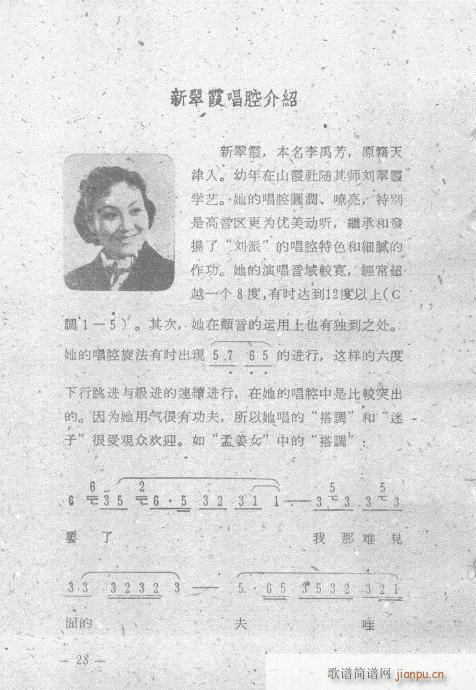 新翠霞唱腔介紹
新翠霞，本名李禹芳，原籍天
津人。幼年在山霞社随其师刘翠霞
学艺。她的唱腔圓潤、嘹亮，特别
是高音区更为优美动听，繼承和發
揚了“刘派”的唱腔特色和細膩的
作功。她的演唱音域較寬，經常超
越一个8度，有时达到12度以上（C
調1—5）。其次，她在顫音的运用上也有独到之处。
她的唱腔旋法有时出現 5 7 6 5 的进行，这样的六度
下行跳进与級进的連續进行，在她的唱腔中是比較突出
的。因为她用气很有功夫，所以她唱的“搭調”和“迷
子”很受观众欢迎。如“孟姜女”中的“搭調”：
6 2 5 5
6 3 5 6·5 3 2 3 1 1 — 3 3 3 3
要 了 我 那 难 見
3 3 3 2 3 2 3 — 5· 6 5 3 5 3 2 3 2 1
面的 夫 哇
— 28 —
歌谱简谱网 jianpu.cn